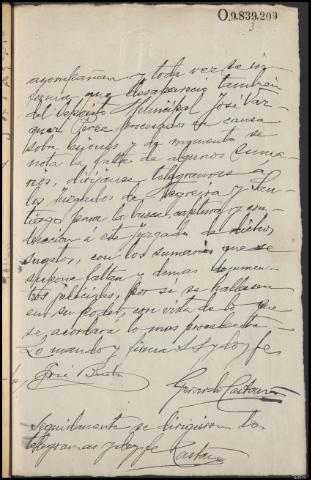 O.9.839.209
3
acompañan y toda vez se in-
forma que desapareció también
del Depósito Municipal José Vaz-
quez Pérez procesado en causa
sobre lesiones y de momento se
nota la falta de algunos suma-
rios, diríjanse telegramas a
los Juzgados de Negreira y San-
tiago para la busca, captura y con-
ducción á este Juzgado de dicho
sugeto, con los sumarios que se
supone faltan y demas documen-
tos judiciales, por si se hallasen
en su poder, con vista de lo que
se acordará lo mas procedente.
Lo mando y firma S.S. y doy fe
José
Gerardo Castaun
Seguidamente se dirigieron los
telegramas y doy fe